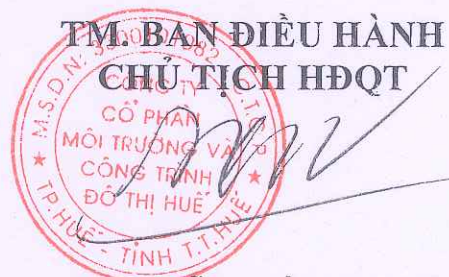 TM. BAN ĐIỀU HÀNH
CHỦ TỊCH HĐQT
CÔNG TY
CỔ PHẦN
MÔI TRƯỜNG VÀ
CÔNG TRÌNH
ĐÔ THỊ HUẾ
TP.HUẾ - TỈNH T.T.HUẾ